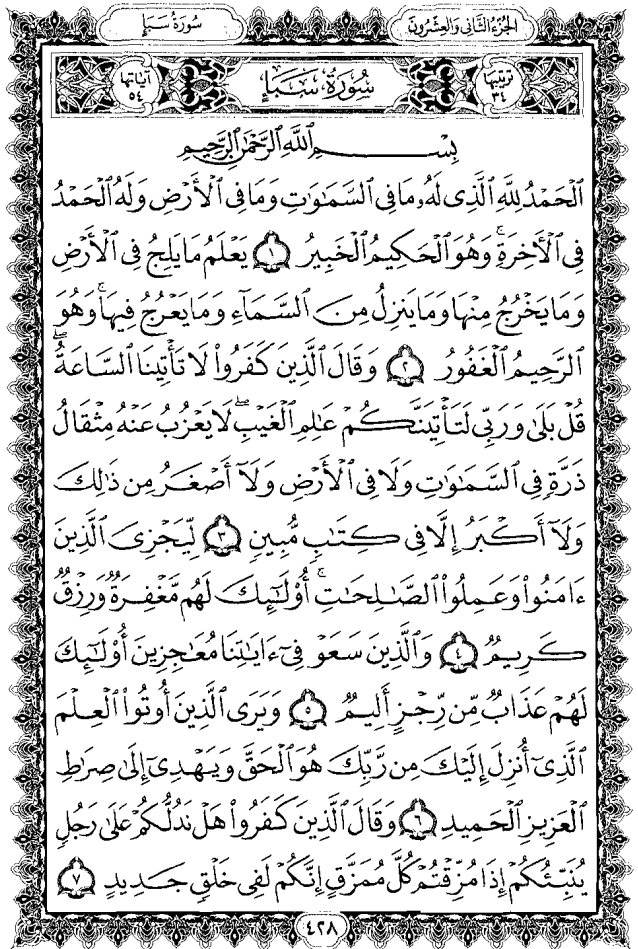 الجزء الثاني والعشرون
سورة سبإ
ترتيبها ٣٤
سُورَةُ سَبَإٍ
آياتها ٥٤
بِسْمِ ٱللَّهِ ٱلرَّحْمَٰنِ ٱلرَّحِيمِ
ٱلْحَمْدُ لِلَّهِ ٱلَّذِى لَهُۥ مَا فِى ٱلسَّمَٰوَٰتِ وَمَا فِى ٱلْأَرْضِ وَلَهُ ٱلْحَمْدُ
فِى ٱلْأَخِرَةِ ۚ وَهُوَ ٱلْحَكِيمُ ٱلْخَبِيرُ ١ يَعْلَمُ مَا يَلِجُ فِى ٱلْأَرْضِ
وَمَا يَخْرُجُ مِنْهَا وَمَا يَنزِلُ مِنَ ٱلسَّمَآءِ وَمَا يَعْرُجُ فِيهَا ۚ وَهُوَ
ٱلرَّحِيمُ ٱلْغَفُورُ ٢ وَقَالَ ٱلَّذِينَ كَفَرُوا۟ لَا تَأْتِينَا ٱلسَّاعَةُ ۖ
قُلْ بَلَىٰ وَرَبِّى لَتَأْتِيَنَّكُمْ عَٰلِمِ ٱلْغَيْبِ ۖ لَا يَعْزُبُ عَنْهُ مِثْقَالُ
ذَرَّةٍ فِى ٱلسَّمَٰوَٰتِ وَلَا فِى ٱلْأَرْضِ وَلَآ أَصْغَرُ مِن ذَٰلِكَ
وَلَآ أَكْبَرُ إِلَّا فِى كِتَٰبٍ مُّبِينٍ ٣ لِّيَجْزِىَ ٱلَّذِينَ
ءَامَنُوا۟ وَعَمِلُوا۟ ٱلصَّٰلِحَٰتِ ۚ أُو۟لَٰٓئِكَ لَهُم مَّغْفِرَةٌ وَرِزْقٌ
كَرِيمٌ ٤ وَٱلَّذِينَ سَعَوْ فِىٓ ءَايَٰتِنَا مُعَٰجِزِينَ أُو۟لَٰٓئِكَ
لَهُمْ عَذَابٌ مِّن رِّجْزٍ أَلِيمٌ ٥ وَيَرَى ٱلَّذِينَ أُوتُوا۟ ٱلْعِلْمَ
ٱلَّذِىٓ أُنزِلَ إِلَيْكَ مِن رَّبِّكَ هُوَ ٱلْحَقَّ وَيَهْدِىٓ إِلَىٰ صِرَٰطِ
ٱلْعَزِيزِ ٱلْحَمِيدِ ٦ وَقَالَ ٱلَّذِينَ كَفَرُوا۟ هَلْ نَدُلُّكُمْ عَلَىٰ رَجُلٍ
يُنَبِّئُكُمْ إِذَا مُزِّقْتُمْ كُلَّ مُمَزَّقٍ إِنَّكُمْ لَفِى خَلْقٍ جَدِيدٍ ٧
٤٢٨